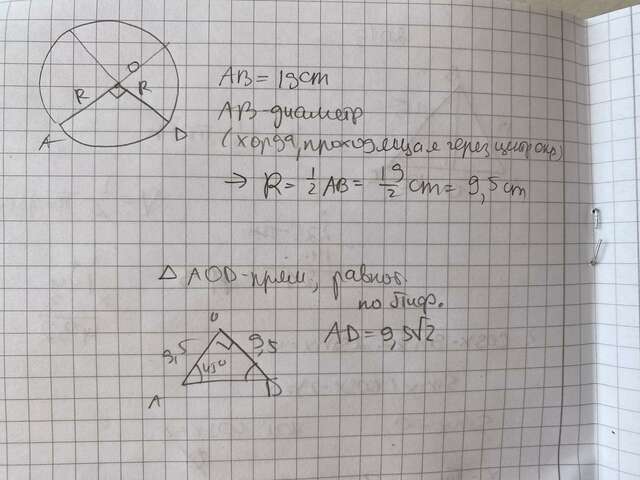 O
R
R
A
D
AB = 19cm
AB-диаметр
(хорда, проходящая через центр окр)
→ R = 1/2 AB = 19/2 cm = 9,5 cm
△ AOD-прям, равноб.
по Пиф.
O
9,5
9,5
AD = 9,5√2
45°
A
D